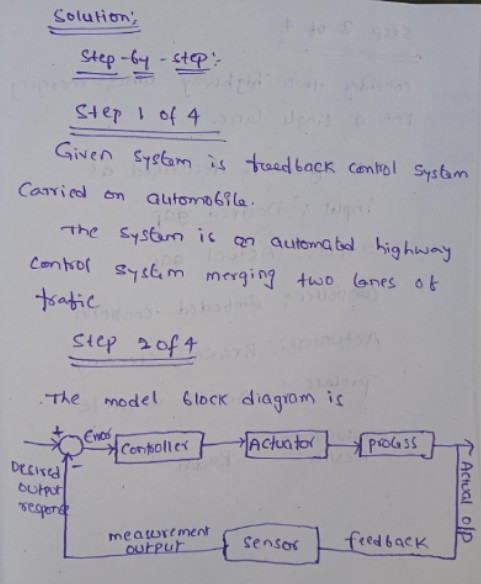 Solution:
Step-by-step:
Step 1 of 4
Given system is feedback control system
Carried on automobile.
The system is an automated highway
control system merging two lanes of
trafic
Step 2 of 4
The model block diagram is
+ Error Controller Actuator process
-
Desired
output
respone
Actual o/p
measurement
output
sensor
feedback